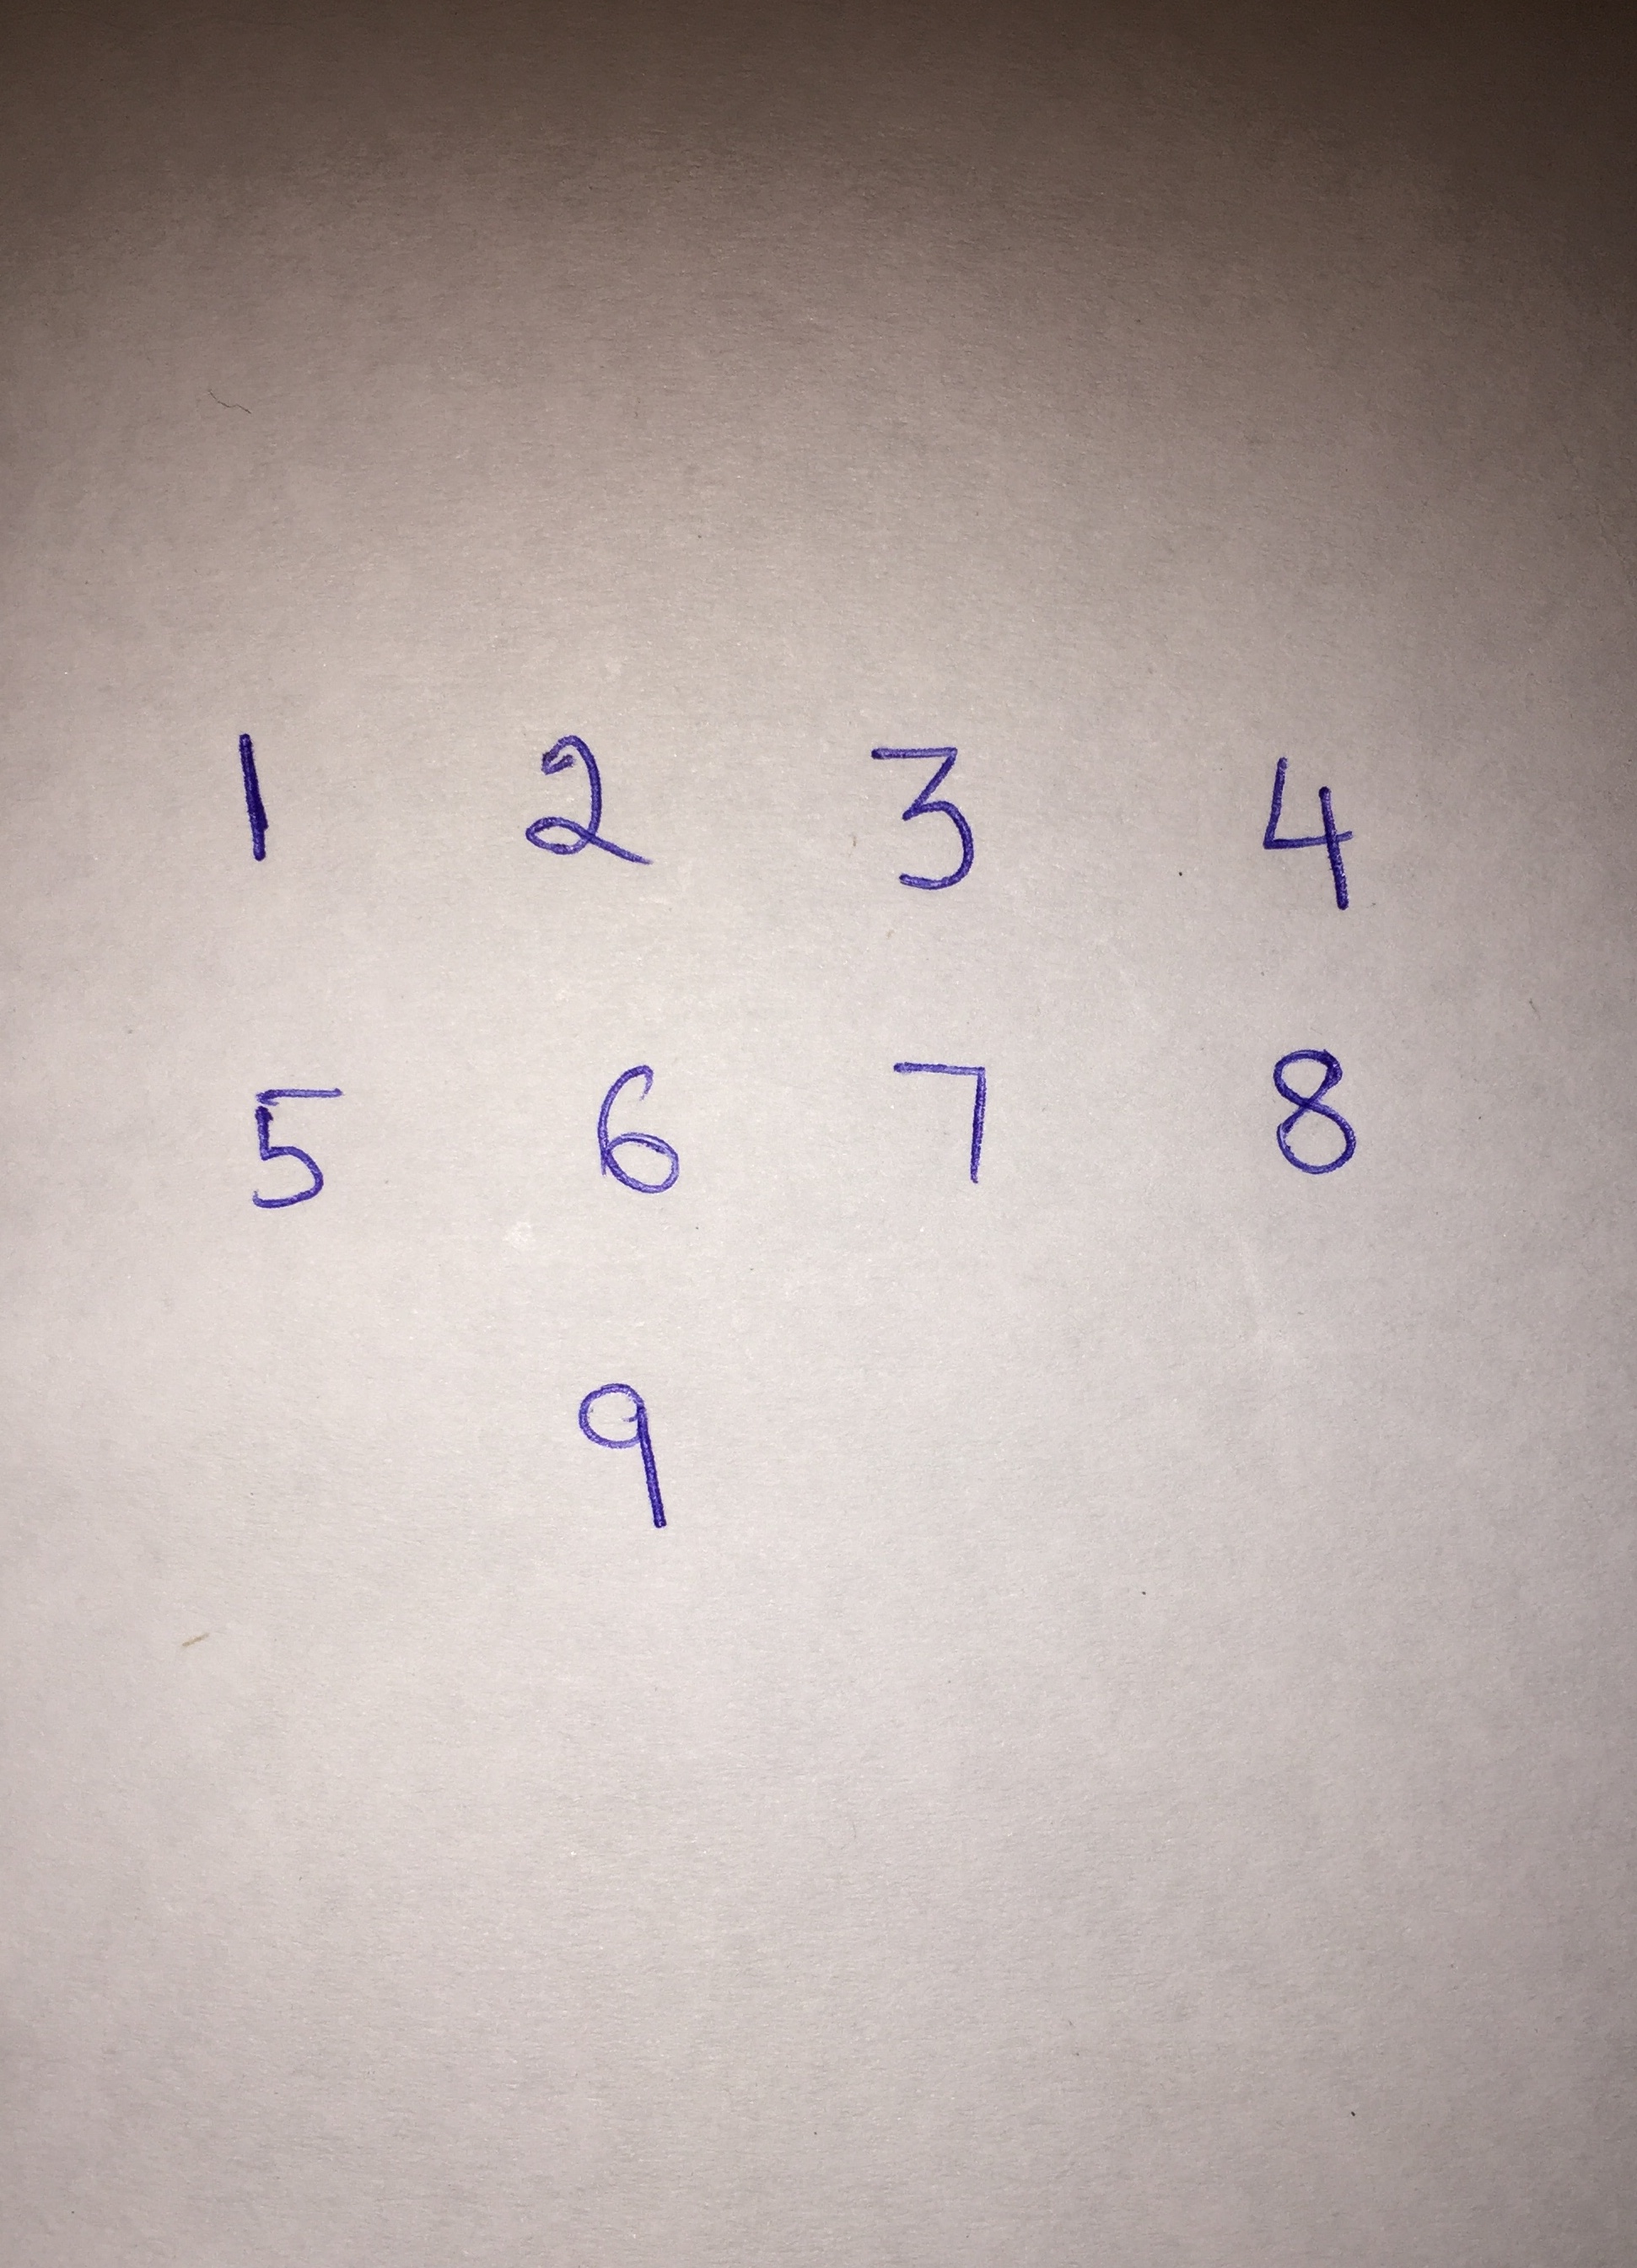 1 2 3 4
5 6 7 8
9